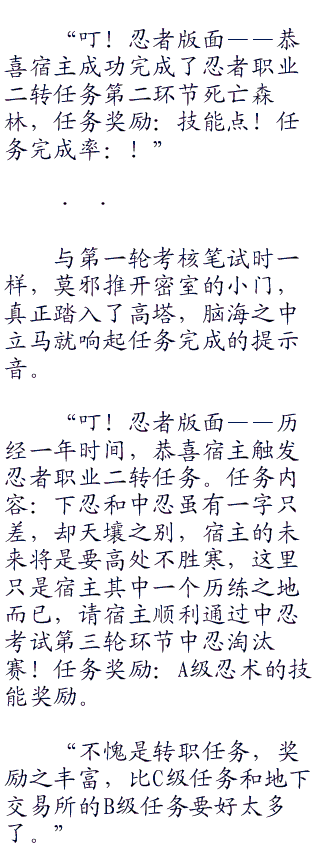 “叮！忍者版面——恭
喜宿主成功完成了忍者职业
二转任务第二环节死亡森
林，任务奖励：技能点！任
务完成率：！”
. .
与第一轮考核笔试时一
样，莫邪推开密室的小门，
真正踏入了高塔，脑海之中
立马就响起任务完成的提示
音。
“叮！忍者版面——历
经一年时间，恭喜宿主触发
忍者职业二转任务。任务内
容：下忍和中忍虽有一字只
差，却天壤之别，宿主的未
来将是要高处不胜寒，这里
只是宿主其中一个历练之地
而已，请宿主顺利通过中忍
考试第三轮环节中忍淘汰
赛！任务奖励：A级忍术的技
能奖励。
“不愧是转职任务，奖
励之丰富，比C级任务和地下
交易所的B级任务要好太多
了。”